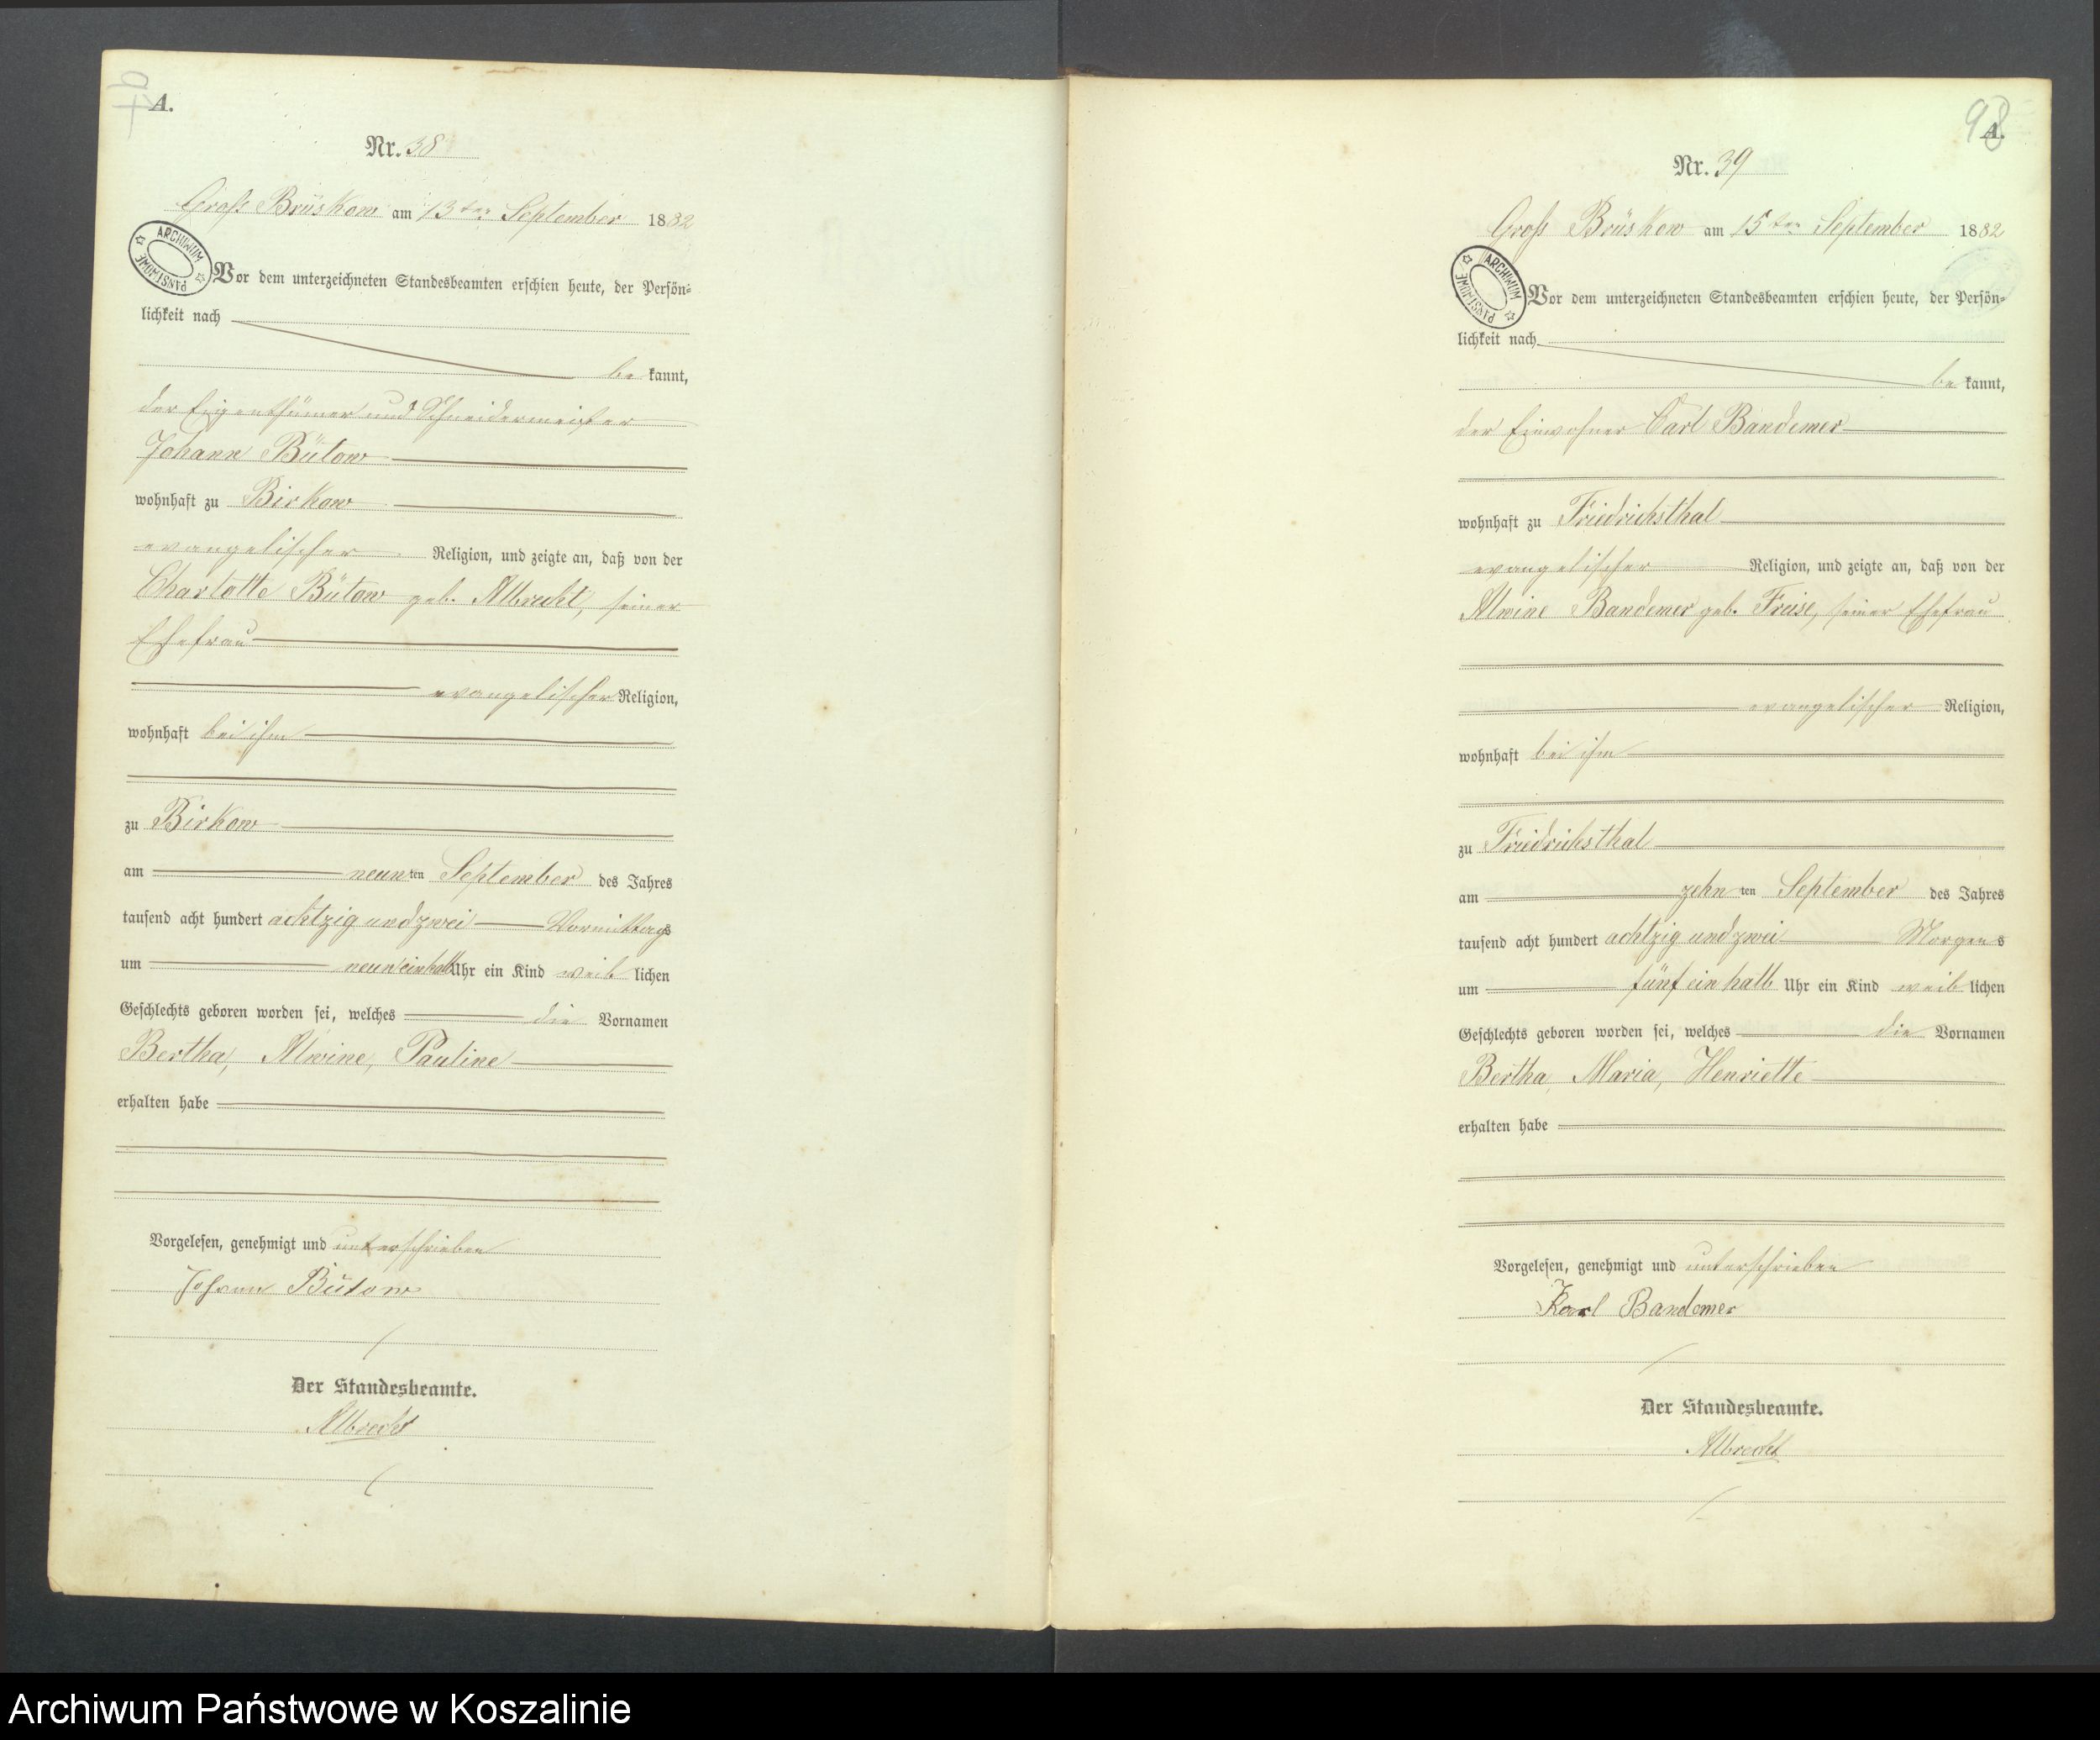 97
A.
Nr. 38
Groß Brüskow am 13ten September 1882
ARCHIWUM PAŃSTWOWE
Vor dem unterzeichneten Standesbeamten erschien heute, der Persön-
lichkeit nach
be kannt,
der Eigenthümer und Schneidermeister
Johann Bütow
wohnhaft zu Birkow
evangelischer Religion, und zeigte an, daß von der
Charlotte Bütow geb. Albrecht, seiner
Ehefrau
evangelischer Religion,
wohnhaft bei ihm
zu Birkow
am neun ten September des Jahres
tausend acht hundert achtzig und zwei Vormittags
um neun einhalb Uhr ein Kind weib lichen
Geschlechts geboren worden sei, welches die Vornamen
Bertha, Alwine, Pauline
erhalten habe
Vorgelesen, genehmigt und unterschrieben
Johann Bütow
Der Standesbeamte.
Albrecht
98
A.
Nr. 39
Groß Brüskow am 15ten September 1882
ARCHIWUM PAŃSTWOWE
Vor dem unterzeichneten Standesbeamten erschien heute, der Persön-
lichkeit nach
be kannt,
der Einwohner Carl Bandemer
wohnhaft zu Friedrichsthal
evangelischer Religion, und zeigte an, daß von der
Alwine Bandemer geb. Freise, seiner Ehefrau
evangelischer Religion,
wohnhaft bei ihm
zu Friedrichsthal
am zehn ten September des Jahres
tausend acht hundert achtzig und zwei Morgens
um fünf ein halb Uhr ein Kind weib lichen
Geschlechts geboren worden sei, welches die Vornamen
Bertha, Maria, Henriette
erhalten habe
Vorgelesen, genehmigt und unterschrieben
Karl Bandemer
Der Standesbeamte.
Albrecht
Archiwum Państwowe w Koszalinie